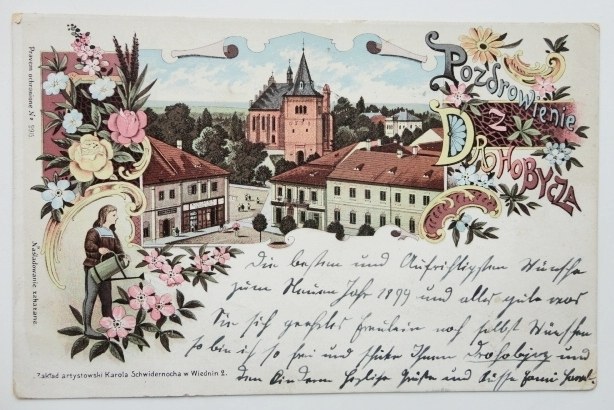 Pozdrowienie
z
DROHOBYCZA
Prawem ochronione Nº 596
Naśladowanie zakazane.
Die besten und Aufrichtigsten Wünsche
zum Neuen Jahr 1899 und alles gute was
Sie sich geehrtes Fräulein noch selbst Wünschen
so bin ich so frei und schicke Ihnen Drohobycz und
den Kindern herzliche Grüße und Küsse
Zakład artystowski Karola Schwidernocha w Wiedniu 2.